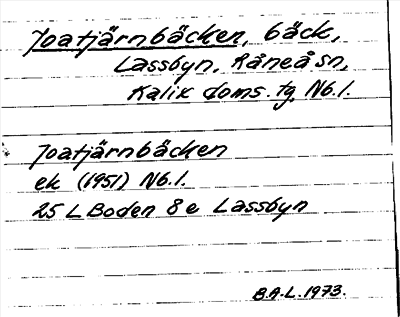 Joatjärnbäcken, bäck,
Lassbyn, Råneå sn,
Kalix doms. tg, Nb.l.
Joatjärnbäcken
ek (1951) Nb.l.
25 L Boden 8 e Lassbyn
B.A-L. 1973.